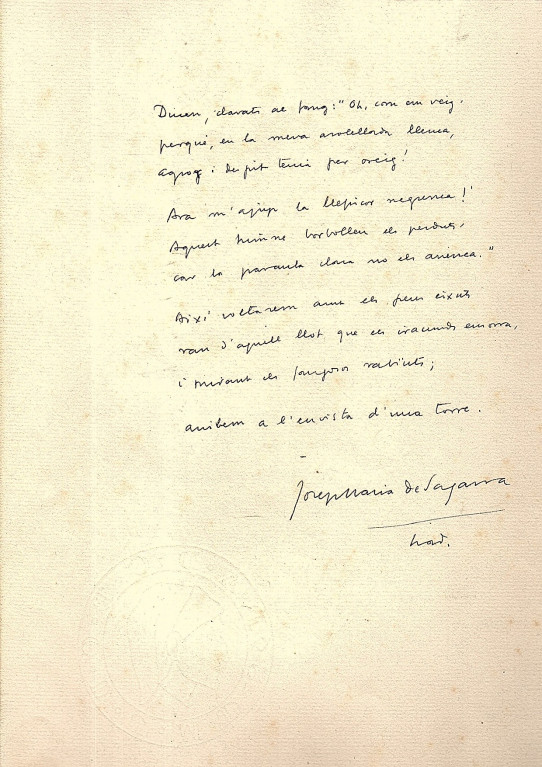 Diuen, clavats al fang: "Oh, com em veig.
perquè, en la meva assolellada llenca,
agror i despit tenia per oreig!
Ara m'ajup la llefiscor negrenca!
Aquest himne borbollen els perduts,
car la paraula clara no els avenca."
Així voltàrem amb els peus eixuts
ran d'aquell llot que els iracunds emorra,
i mirant els fangosos rabiüts;
arribem a l'envista d'una torre.
Josep Maria de Sagarra
trad.